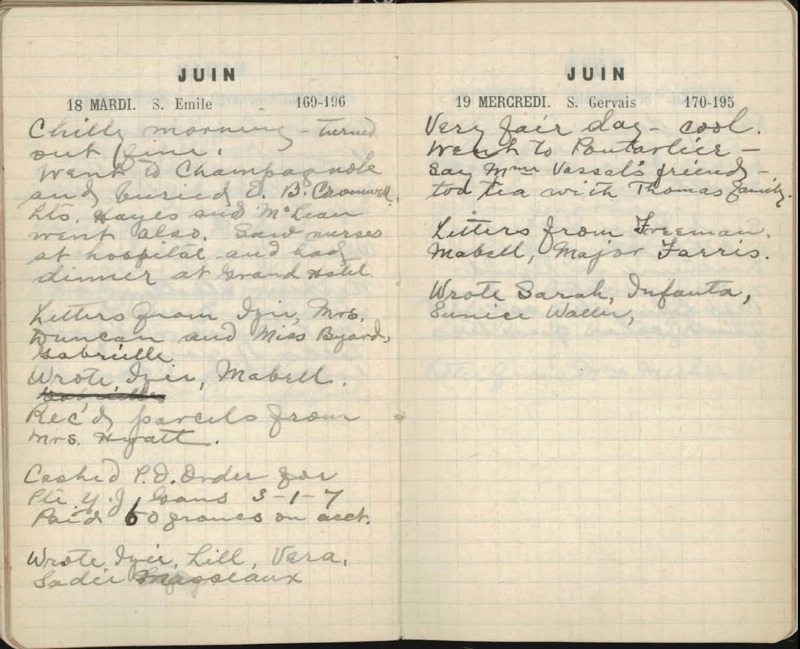 JUIN
18 MARDI. S. Emile 169-196
Chilly morning - turned
out fine.
Went to Champagnole
and buried E. B. Cromwell.
Lts. Hayes and McLean
went also. Saw nurses
at hospital and had
dinner at Grand Hotel.
Letters from Izie, Mrs.
Duncan and Miss Byard,
Gabrielle
Wrote Izie, Mabell.
Rec'd parcels from
Mrs. Hyatt.
Cashed P.O. Order for
Pte Y. J. 3-1-7
Paid 60 francs on acct.
Wrote Izie, Lill, Vera,
Sadie
JUIN
19 MERCREDI. S. Gervais 170-195
Very fair day - cool.
Went to Pontarlier -
Say Mme Vassal's friends -
too tea with Thomas family.
Letters from Freeman,
Mabell, Major Farris.
Wrote Sarah, Infanta,
Eunice Waller,